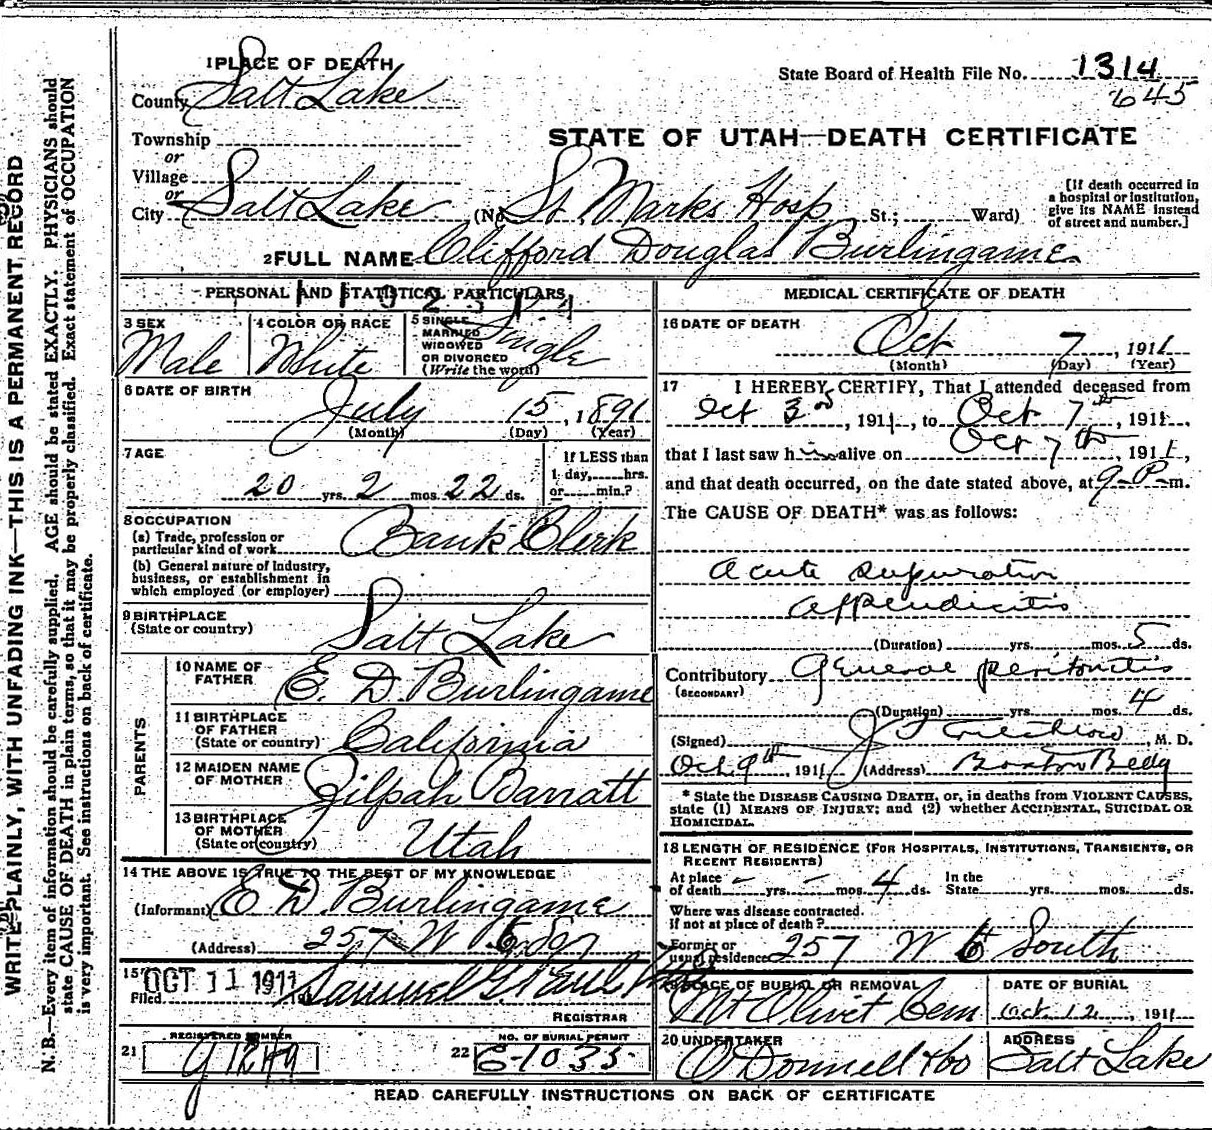 1 PLACE OF DEATH
County Salt Lake
State Board of Health File No. 1314
645
Township
or
Village
or
City Salt Lake (No. St. Marks Hosp St.; Ward)
STATE OF UTAH—DEATH CERTIFICATE
[If death occurred in
a hospital or institution,
give its NAME instead
of street and number.]
2 FULL NAME Clifford Douglas Burlingame
PERSONAL AND STATISTICAL PARTICULARS
3 SEX
Male
4 COLOR OR RACE
White
5 SINGLE
MARRIED
WIDOWED
OR DIVORCED
(Write the word)
Single
6 DATE OF BIRTH
July 15, 1891
(Month) (Day) (Year)
7 AGE
20 yrs. 2 mos. 22 ds.
If LESS than
1 day, hrs.
or min.?
8 OCCUPATION
(a) Trade, profession or
particular kind of work Bank Clerk
(b) General nature of industry,
business, or establishment in
which employed (or employer)
9 BIRTHPLACE
(State or country) Salt Lake
PARENTS
10 NAME OF
FATHER E. D. Burlingame
11 BIRTHPLACE
OF FATHER
(State or country) California
12 MAIDEN NAME
OF MOTHER Zilpah Barratt
13 BIRTHPLACE
OF MOTHER
(State or country) Utah
14 THE ABOVE IS TRUE TO THE BEST OF MY KNOWLEDGE
(Informant) E D. Burlingame
(Address) 257 W 6 So
15
Filed OCT 11 1911 Samuel G. Paul
REGISTRAR
REGISTERED NUMBER
21
NO. OF BURIAL PERMIT
22 E-1035
MEDICAL CERTIFICATE OF DEATH
16 DATE OF DEATH
Oct 7, 1911
(Month) (Day) (Year)
17 I HEREBY CERTIFY, That I attended deceased from
Oct 3rd, 1911, to Oct 7th, 1911,
that I last saw him alive on Oct 7th, 1911,
and that death occurred, on the date stated above, at 9-P-m.
The CAUSE OF DEATH* was as follows:
acute supurative
appendicitis
(Duration) yrs. mos. 5 ds.
Contributory General peritonitis
(SECONDARY)
(Duration) yrs. mos. 4 ds.
(Signed) J , M. D.
Oct 9th, 1911 (Address) Boston Bldg
* State the DISEASE CAUSING DEATH, or, in deaths from VIOLENT CAUSES,
state (1) MEANS OF INJURY; and (2) whether ACCIDENTAL, SUICIDAL OR
HOMICIDAL.
18 LENGTH OF RESIDENCE (FOR HOSPITALS, INSTITUTIONS, TRANSIENTS, OR
RECENT RESIDENTS)
At place
of death - yrs. - mos. 4 ds. In the
State yrs. mos. ds.
Where was disease contracted.
if not at place of death?
Former or
usual residence 257 W 6 South
19 PLACE OF BURIAL OR REMOVAL
Mt Olivet Cem
DATE OF BURIAL
Oct. 12, 1911
20 UNDERTAKER
O'Donnell & Co
ADDRESS
Salt Lake
READ CAREFULLY INSTRUCTIONS ON BACK OF CERTIFICATE
WRITE PLAINLY, WITH UNFADING INK—THIS IS A PERMANENT RECORD
N. B.—Every item of information should be carefully supplied. AGE should be stated EXACTLY. PHYSICIANS should
state CAUSE OF DEATH in plain terms, so that it may be properly classified. Exact statement of OCCUPATION
is very important. See instructions on back of certificate.